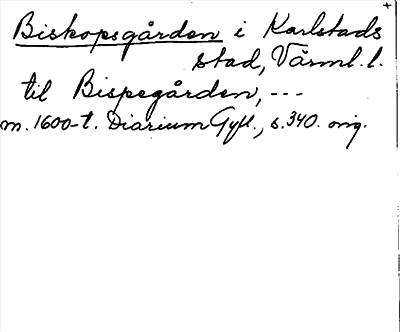 Biskopsgården i Karlstads
stad, Värml. l.
til Bispegården, ---
m. 1600-t. Diarium Gyll., s. 340. orig.